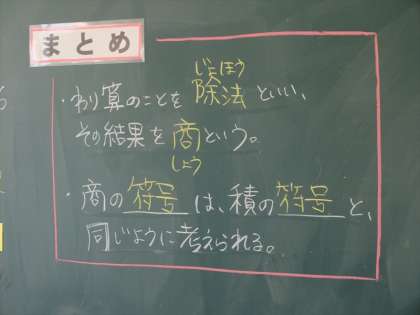 まとめ
じょほう
・わり算のことを除法といい、
その結果を商という。
しょう
・商の符号は、積の符号と、
同じように考えられる。